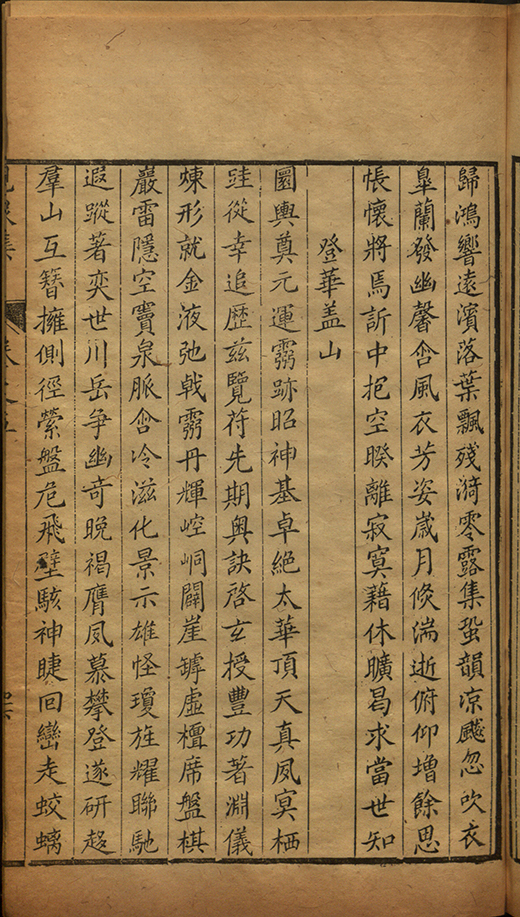 歸鴻響遠濱落葉飄殘漪零露集蛩韻凉飈忽吹衣
臯蘭發幽馨含風衣芳姿歲月倐湍逝俯仰増餘思
悵懷將焉訴中抱空暌離寂寞藉休曠曷求當世知
登華盖山
圜輿奠元運霛跡昭神基卓絶太華頂天真夙㝠栖
跬從幸追歷兹覽荷先期奥訣啓玄授豐功著淵儀
煉形就金液弛戟霛丹輝崆峒闢崖罅虛檀席盤棋
巖雷隱空竇泉脈含冷滋化景示雄怪瓊旌耀聯馳
遐蹤著奕世川岳争幽竒晚褐膺夙慕攀登遂研趍
羣山互簪擁側徑縈盤危飛壁駭神睫回巒走蛟螭